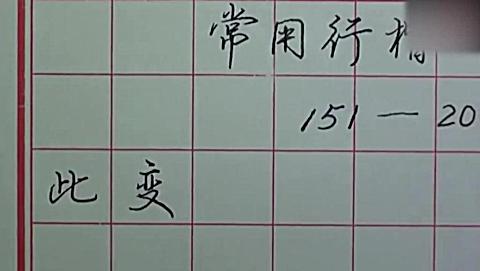 常用行楷
151—20
此变